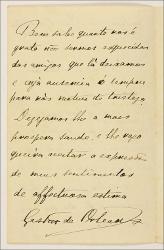 Bem sabe quanto nos é
grato não sermos esquecidos
dos amigos que lá deixamos
e cuja ausencia é sempre
para nós motivo de tristeza
Desejamos lhe a mais
prospera saude, e lhe rogo
queira aceitar a expressão
de meus sentimentos
de affectuosa estima
Gastão de Orleans